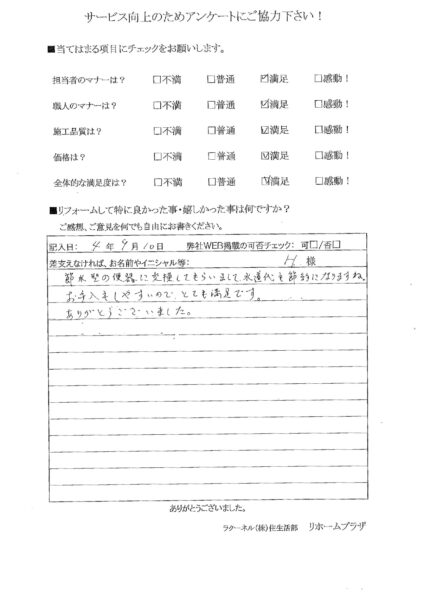 サービス向上のためアンケートにご協力下さい！
■当てはまる項目にチェックをお願いします。
担当者のマナーは？ □不満 □普通 ☑満足 □感動！
職人のマナーは？ □不満 □普通 ☑満足 □感動！
施工品質は？ □不満 □普通 ☑満足 □感動！
価格は？ □不満 □普通 ☑満足 □感動！
全体的な満足度は？ □不満 □普通 ☑満足 □感動！
■リフォームして特に良かった事・嬉しかった事は何ですか？
ご感想、ご意見を何でも自由にお書きください。
記入日： 4年9月10日 弊社WEB掲載の可否チェック： 可□/否□
差支えなければ、お名前やイニシャル等： H 様
節水型の便器に交換してもらいまして、水道代も節約になりますね。
お手入もしやすいので、とても満足です。
ありがとうございました。
ありがとうございました。
ラクーネル（株）住生活部 リホームプラザ